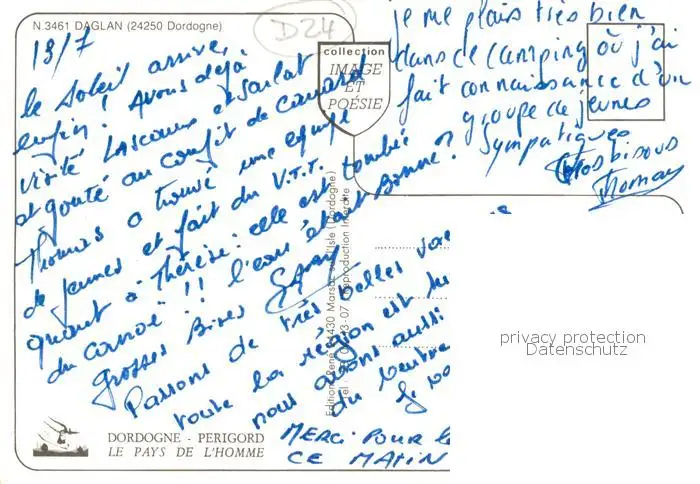 N.3461 DAGLAN (24250 Dordogne)
D24
13/7
le soleil arrive,
enfin! Avons déjà
visité Lascaux et Sarlat
et goûté au confit de canard
Thomas a trouvé une équipe
de jeunes et fait du V.T.T.
quant à Thérèse: elle est tombée
du canoë!! l'eau était bonne?
grosses bises
Passons de très belles
toute la région est
nous avons aussi
du
MERCI POUR
CE MATIN
collection
IMAGE
ET
POÉSIE
je me plais très bien
dans ce camping où j'ai
fait connaissance d'un
groupe de jeunes
sympatiques
Gros bisous
Thomas
Reproduction Interdite
DORDOGNE - PERIGORD
LE PAYS DE L'HOMME
privacy protection
Datenschutz